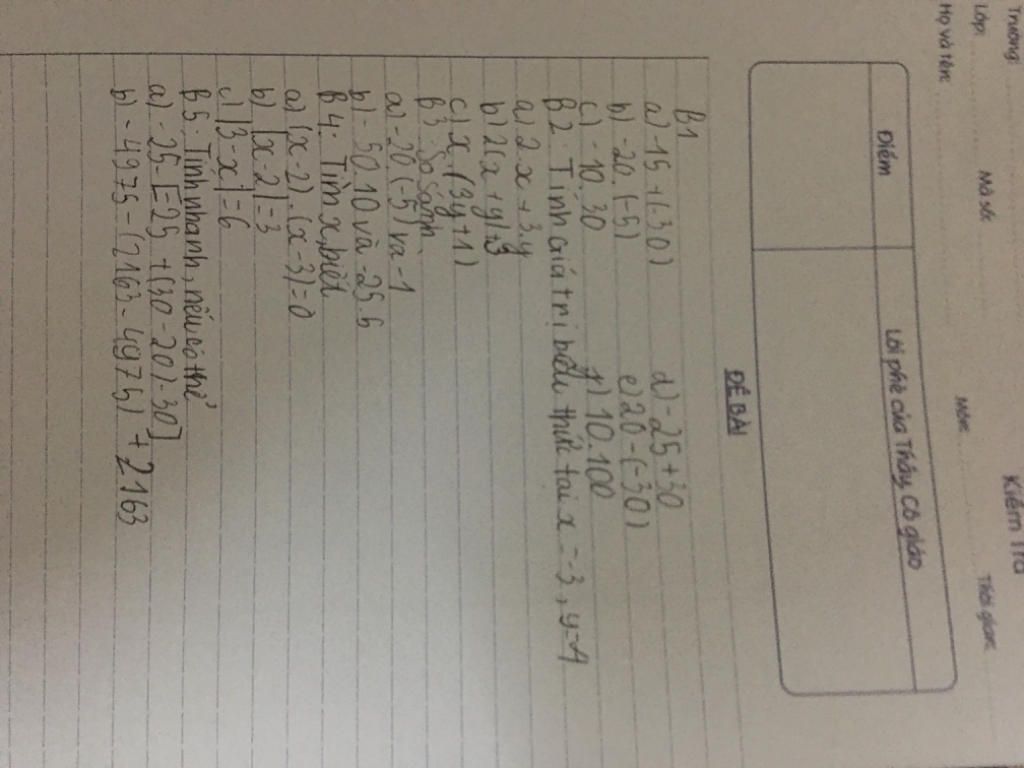 Kiểm tra
Trường:
Lớp: Mã số: Môn: Thời gian:
Họ và tên:
Điểm Lời phê của Thầy, Cô giáo
ĐỀ BÀI
B1
a) -15 + (-30) d) -25 + 30
b) -20. (-5) e) 20 - (-30)
c) -10. 30 f) 10. 100
B2. Tính giá trị biểu thức tại x = -3, y = 4
a) 2x + 3.y
b) 2(x + y) + 3
c) x. (3y + 1)
B3. So sánh
a) -20 (-5) và -1
b) -50.10 và -25.6
B4. Tìm x, biết
a) (x-2). (x-3) = 0
b) |x-2| = 3
c) |3-x| = 6
B5. Tính nhanh, nếu có thể
a) -25 - [-25 + (30 - 20) - 30]
b) -4975 - (2163 - 4975) + 2163